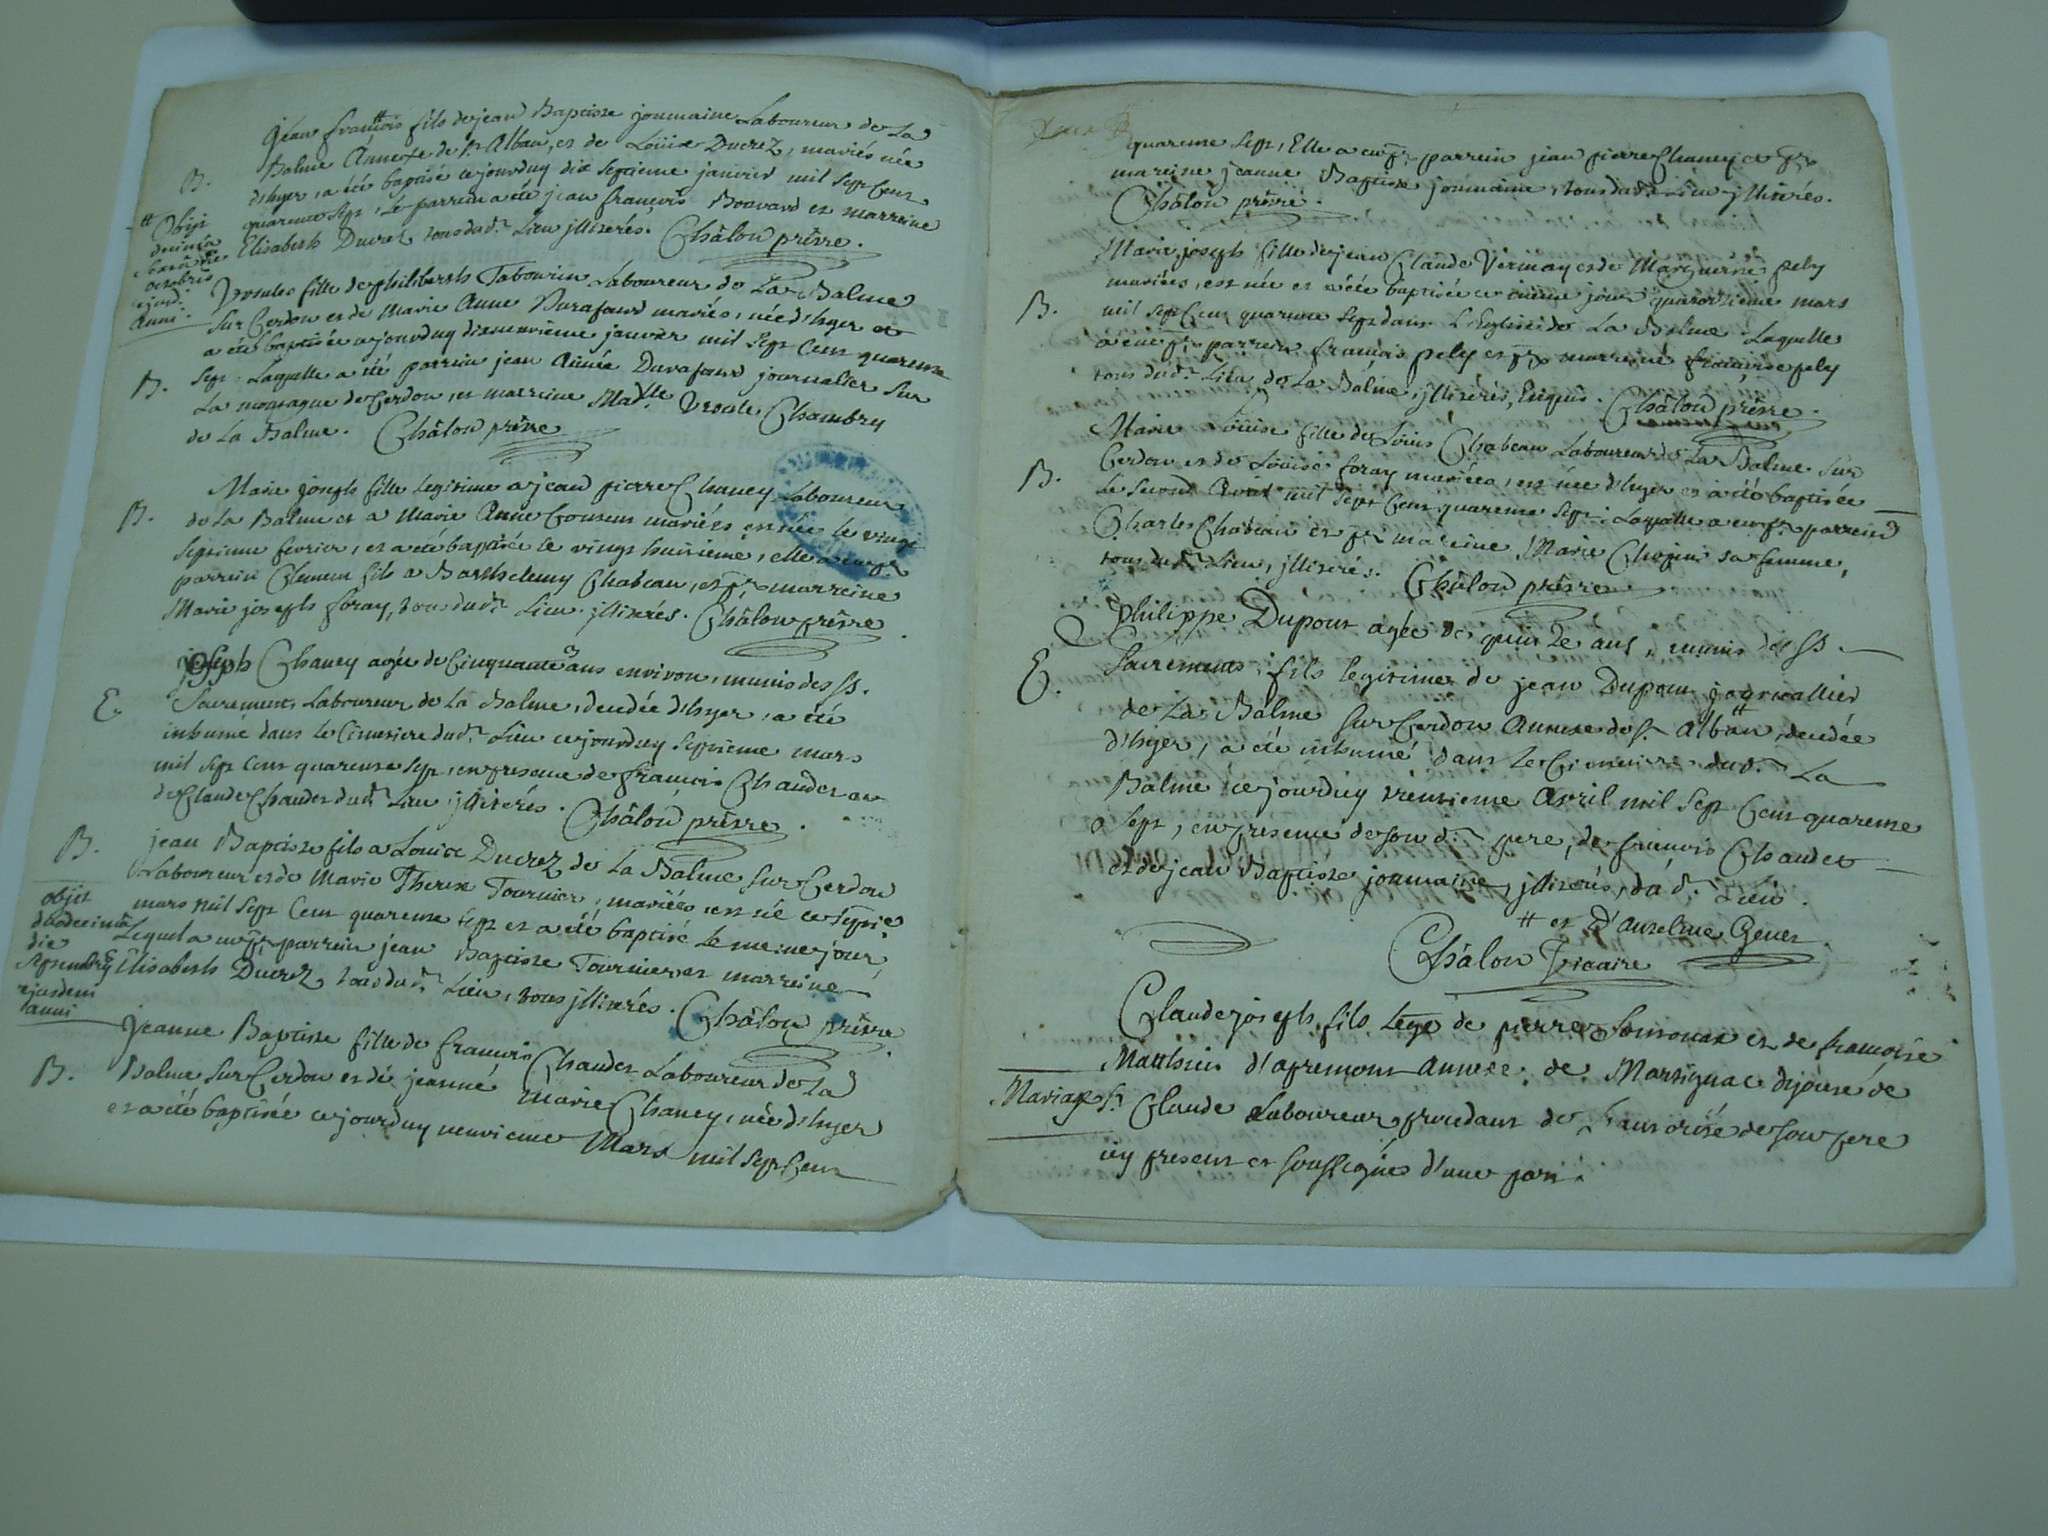 jean françois fils de jean Baptiste joumaine Laboureur de La
Balme Annexe de st Alban, et de Loüise Ducrez, mariés née
B.
d'hyer, a été baptisé cejourduy dix septieme janvier mil sept Cent
quarente sept, le parrein a été jean françois Bouvard et marreine
Elisabeth Ducrez tous dud.t Lieu jllitérés. Châlon prêtre.
# Obijt
octobris
ejusd.
anni.
Vrsule fille de philiberth Tabourin Laboureur de La Balme
sur Cerdon et de Marie Anne Durafour mariés, née d'hyer et
a été baptisée cejourduy dixneuvieme janvier mil sept Cent quarente
B.
sept, Laquelle a été parrein jean Aimée Durafour journalier sur
La montagne de Cerdon, et marreine Mad.lle Vrsule Chambry
de La Balme. Châlon prêtre
Marie joseph fille legitime a jean pierre Chaney Laboureur
B.
de La Balme et a Marie Anne Cousens mariés est née le vingt
septieme fevrier, et a été baptisée le vingt huitieme, elle a eu pr
parrein Clement fils a Barthelemy Chabeau, et pr marreine
Marie joseph foray, tous dud.t Lieu jllitérés. Châlon prêtre.
joseph Chaney agée de Cinquante ans environ, munis des ss.
E.
Sacrements Laboureur de La Balme, decedée d'hyer, a été
inhumé dans le Cimetiere dud.t Lieu cejourduy septieme mars
mil sept Cent quarente sept, en presence de françois Chaudet et
de Claude Chaudet dud.t Lieu jllitérés. Châlon prêtre.
B.
jean Baptiste fils a Louis Ducrez de La Balme sur Cerdon
Laboureur et de Marie Therese Tournier, mariés est né ce septie
mars mil sept Cent quarente sept et a été baptisé le meme jour,
Lequel a eu pr parrein jean Baptiste Tournier et marreine
Elisabeth Ducrez tous dud.t Lieu, tous jllitérés. Châlon prêtre.
objit
duodecimâ
die
septembris
ejusdem
anni
jeanne Baptiste fille de françois Chaudet Laboureur de La
B.
Balme sur Cerdon et de jeanne Marie Chaney, née d'hyer
et a été baptisée cejourduy neuvieme Mars mil sept Cent
quarente sept, Elle a eu pr parrein jean pierre Chaney et pr
mareine jeanne Baptiste joumaine, tous dud.t Lieu jllitérés.
Châlon prêtre.
Marie joseph fille de jean Claude Vermay et de Marguerite pely
mariées, est née et a été baptisée ce meme jour quatorzieme mars
B.
mil sept Cent quarente sept dans L'Eglise de La Balme Laquelle
a eu pr parrein françois pely et pr marreine françoise pely
tous dud.t Lieu de La Balme, jllitérés, Enquis. Châlon prêtre.
Marie Loüise fille de Loüis Chabeau Laboureur de La Balme sur
B.
Cerdon et de Loüise foray mariées, est née d'hyer et a été baptisée
Le second Avril mil sept Cent quarente sept; Laquelle a eu pr parrein
Charles Chabeau et pr mareine Marie Chopin sa femme,
tous dud.t Lieu, jllitérés. Châlon prêtre
philippe Dupont agée de quinze ans, munis des ss.
E.
Sacrements, fils legitime de jean Dupont journallier
de La Balme sur Cerdon Annexe de st Alban #, decedée
d'hyer, a été inhumé dans le Cimetiere dud.t La
Balme cejourduy trentieme Avril mil sept Cent quarente
sept, en presence de son d.t pere, de françois Chaudet
et de jean Baptiste joumaine, jllitérés, du d.t Lieu.
# et D'anselme Genet
Châlon Vicaire
Claude joseph fils Lege de pierre Sonsonax et de françoise
Matthieu d'apremont annexe de Martignat dioçese de
Mariage
st Claude Laboureur procedant de L'autorité de son pere
icy present et soussigné d'une part.